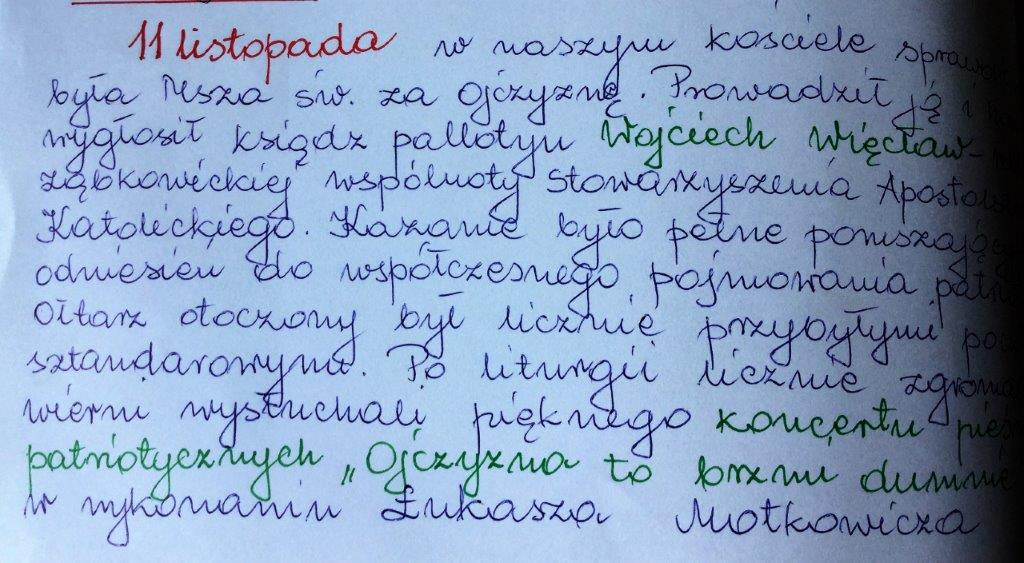 11 listopada w naszym kościele
była Msza św. za Ojczyznę. Prowadził ją i
wygłosił ksiądz pallotyn Wojciech Więcław -
ząbkowickiej wspólnoty Stowarzyszenia
Katolickiego. Kazanie było pełne
odniesień do współczesnego pojmowania
Ołtarz otoczony był licznie przybyłymi
sztandarowymi. Po liturgii licznie
wierni wysłuchali pięknego koncertu
patriotycznych „Ojczyzna to brzmi dumnie
w wykonaniu Łukasza Motkowicza